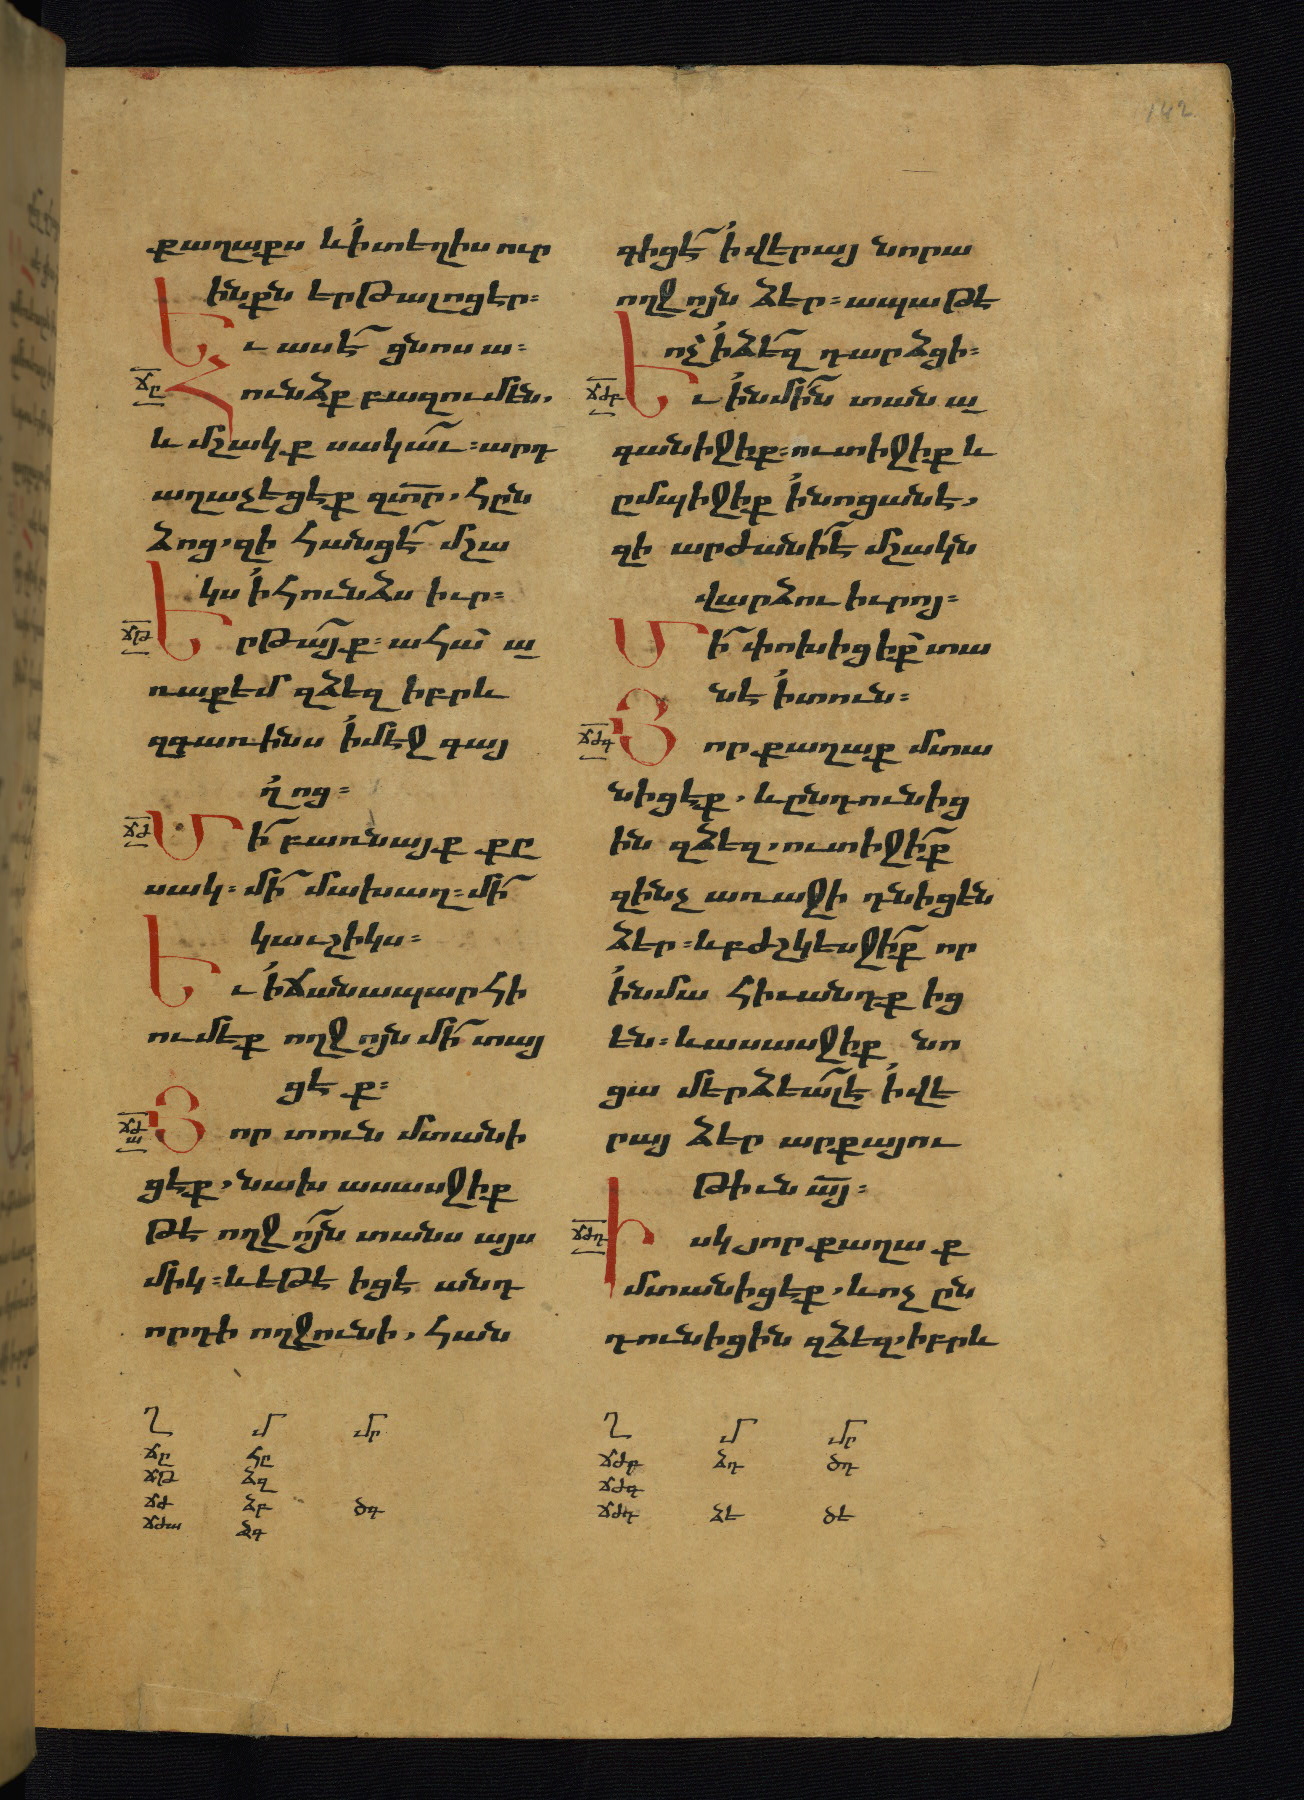 142
քաղաքս և ՛ի տեղիս ուր
ինքն երթալոցէր։
Ե՛ւ ասէ՜ ցնոսա։
ճը Հունձք բազում են,
և մշակք սակաւ։ արդ
աղաչեցէք զտր, հըն
ձոց, զի հանցէ՜ մշա
կս ՛ի հունձս իւր։
ճթ Երթա՜յք։ ահա՜ ա
ռաքեմ զձեզ իբրև
զգառինս ՛ի մէջ գայ
լոց։
ճժ Մի՜ բառնայք քը
սակ։ մի՜ մախաղ։ մի՜
կաւշիկս։
Եւ ՛ի ճանապարհի
ումեք ողջոյն մի՜ տայ
ցէ ք։
ճժա Յոր տուն մտանի
ցէք, նախ ասասջիք
թէ ողջո՜յն տանս այս
միկ։ և եթէ իցէ անդ
որդի ողջունի, հան
գիցէ՜ ՛ի վերայ նորա
ողջոյն ձեր։ ապա թէ
ոչ ՛ի ձէ՜զ դարձցի։
ճժբ Եւ ՛ի նմի՜ն տան ա
գանիջիք։ ուտիջիք և
ըմպիջիք ՛ի նոցանէ,
զի արժանի՜ է մշակն
վարձու իւրոյ։
Մի՜ փոխիցիք տա
նէ ՛ի տուն։
ճժգ Յոր քաղաք մտա
նիցէք, և ընդունից
ին զձեզ, ուտիջի՜ք
զինչ առաջի դնիցեն
ձեր։ և բժշկեսջի՜ք որ
՛ի նմա հիւանդք ից
են։ և ասասջիք նո
ցա մերձեա՜լ է ՛ի վե
րայ ձեր արքայու
թիւն այ։
ճժդ Իսկ յոր քաղա ք
մտանիցէք, և ոչ ըն
դունիցին զձեզ, իբրև
Ղ Մ Մր
ճը հը
ճթ ձզ
ճժ ձբ ծգ
ճժա ձգ
Ղ Մ Մր
ճժբ ձդ ծդ
ճժգ
ճժդ ձե ծե